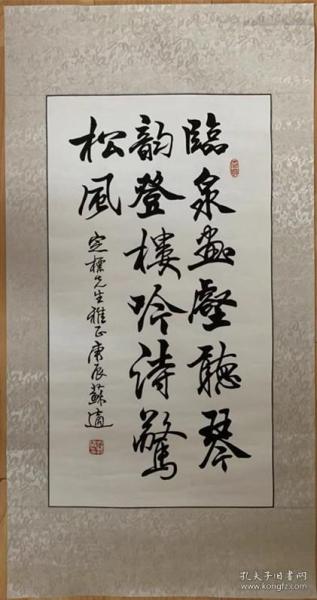 臨泉畫壑聽琴
韵登樓吟詩驚
松風
定標先生雅正庚辰蘇適
孔夫子旧书网
www.kongfz.com